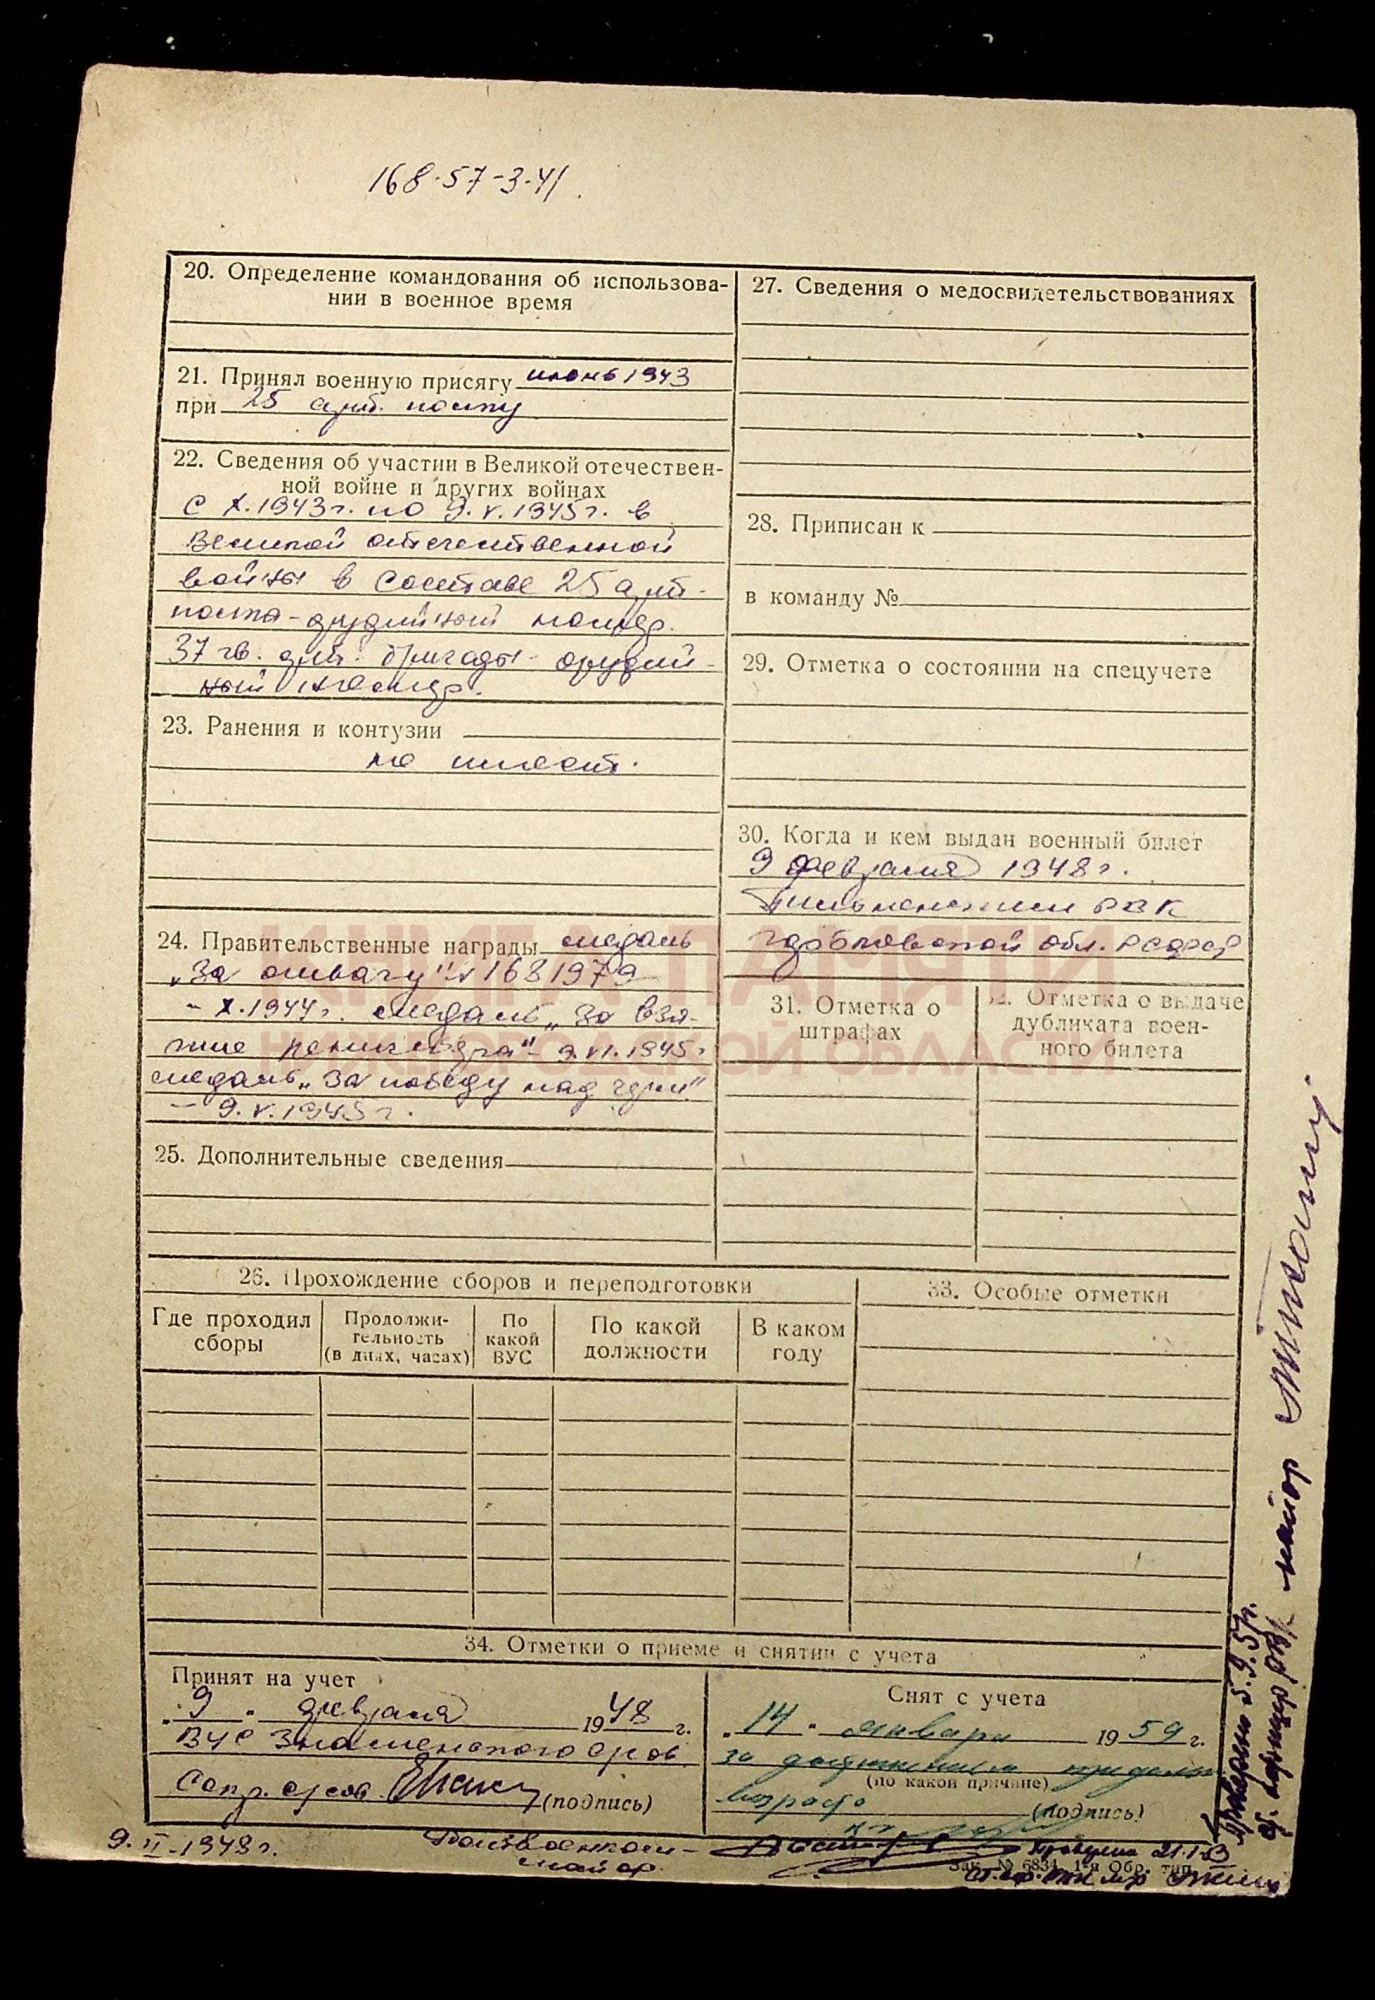 168-57-3-41
20. Определение командования об использова-
нии в военное время
21. Принял военную присягу июнь 1943
при 25 арт. полку
22. Сведения об участии в Великой отечествен-
ной войне и других войнах
с X.1943 г. по 9.V.1945 г. в
Великой отечественной
войны в составе 25 арт.
полка - орудийный номер.
37 гв. арт. бригады - орудий-
ный номер.
23. Ранения и контузии
не имеет.
24. Правительственные награды медаль
„За отвагу" № 1681979
- X.1944 г. медаль „За взя-
тие
- 9.VI.1945 г
медаль „За победу над герм"
- 9.V.1945 г.
25. Дополнительные сведения
26. Прохождение сборов и переподготовки
Где проходил
сборы
Продолжи-
тельность
(в днях, часах)
По
какой
ВУС
По какой
должности
В каком
году
27. Сведения о медосвидетельствованиях
28. Приписан к
в команду №
29. Отметка о состоянии на спецучете
30. Когда и кем выдан военный билет
9 февраля 1948 г.
РВК
обл. РСФСР
31. Отметка о
штрафах
32. Отметка о выдаче
дубликата воен-
ного билета
33. Особые отметки
КНИГА ПАМЯТИ
НИЖЕГОРОДСКОЙ ОБЛАСТИ
34. Отметки о приеме и снятии с учета
Принят на учет
„9" февраля 1948 г.
ВУС Знаменского
(подпись)
9.II-1948 г.
майор.
Снят с учета
„14" января 1959 г.
за достижением предельн
(по какой причине)
возраста
(подпись)
Зак. № 6834. 1-я Обр. тип.
Проверено 5.9.57г.
майор